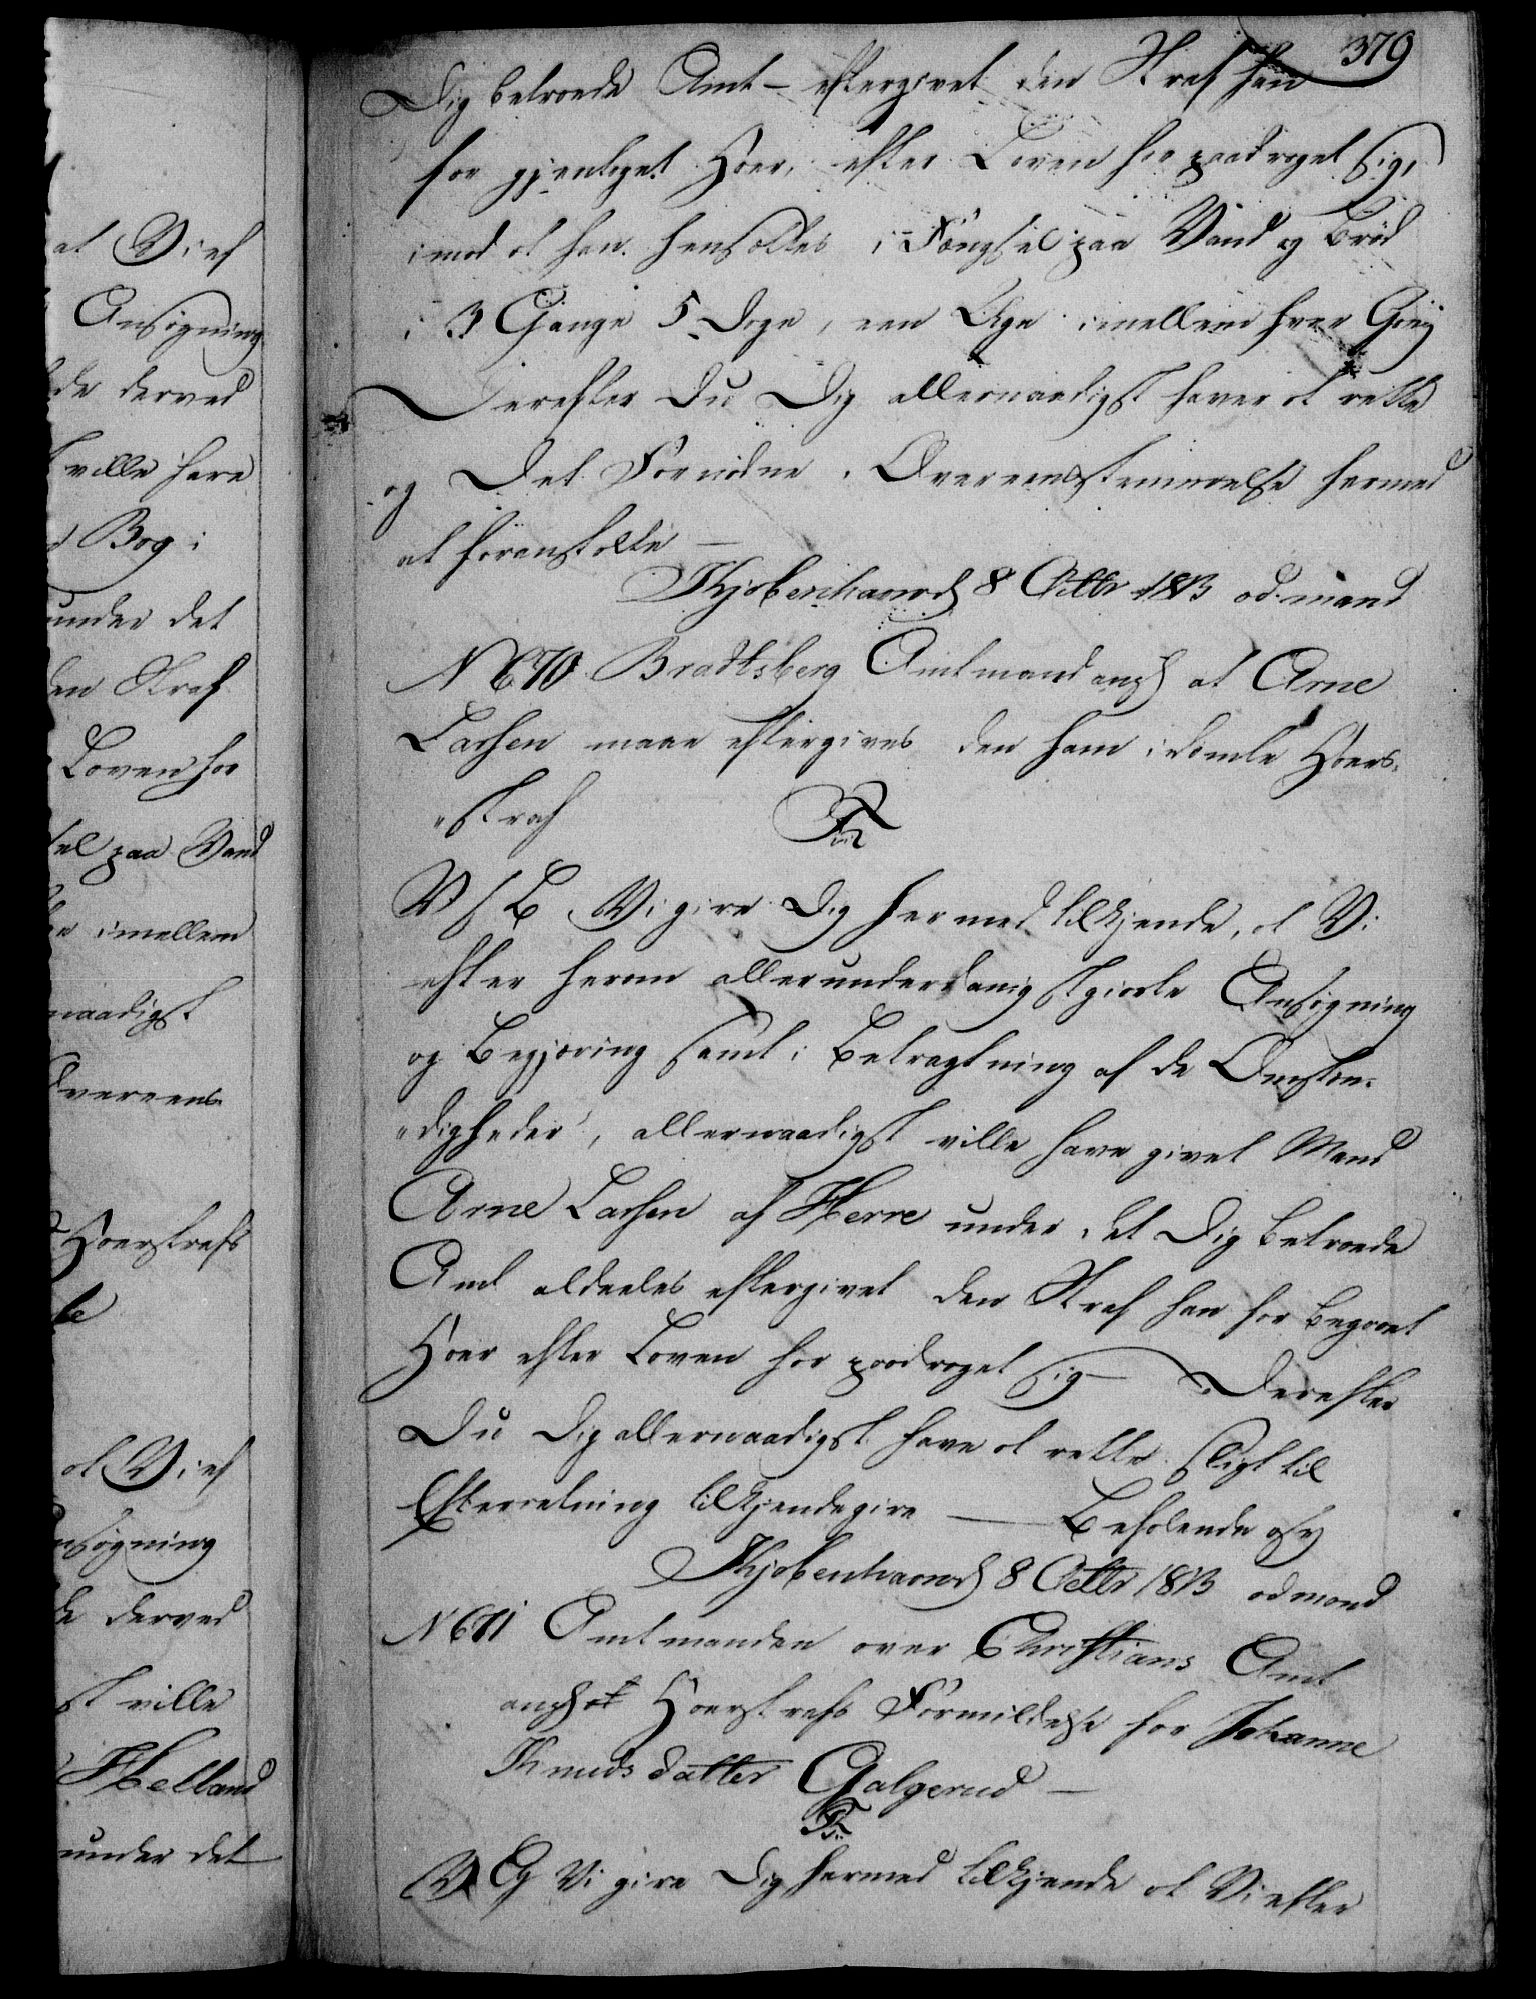 379
Dig betroede Amt – eftergivet den Straf han
for gjentaget Hoer, efter Loven har paadraget sig,
imod at han hensættes i Fængsel paa Vand og Brød
i 3 Gange 5 Dage, een Uge imellem hver Gang
Derefter Du Dig allernaadigst haver at rette
og Det Fornødne i Overeensstemmelse hermed
at foranstalte —
Kjøbenhavn d 8 Octbr 1813 ad mand
N 670 Bradtsberg Amtmand anh at Arne
Larsen maae eftergives den ham idømte Hoers-
straf
V S B Vi give Dig hermed tilkjende, at Vi
efter herom allerunderdanigst giorte Ansøgning
og Begjæring samt i Betragtning af de Omstæn-
digheder, allernaadigst ville have givet Mand
Arne Larsen af Herre under det Dig betroede
Amt aldeeles eftergivet den Straf han for begaaet
Hoer efter Loven har paadraget sig – Derefter
Du Dig allernaadigst have at rette sligt til
Efterretning tilkjendegive — Befalende
Kjøbenhavn d 8 Octbr 1813 ad mand
N 671 Amtmanden over Christians Amt
anh Hoerstrafs Formildelse for Johanne
Knudsdatter Galgerud —
V G Vi give Dig hermed tilkjende at Vi efter
at Vi ef
Ansøgning
de derved
ville have
Bog i
under det
den Straf
Loven har
sel paa Vand
imellem
naadigst
Overeens-
Hoerstrafs
at Vi ef
Ansøgning
de derved
st ville
Helland
under det